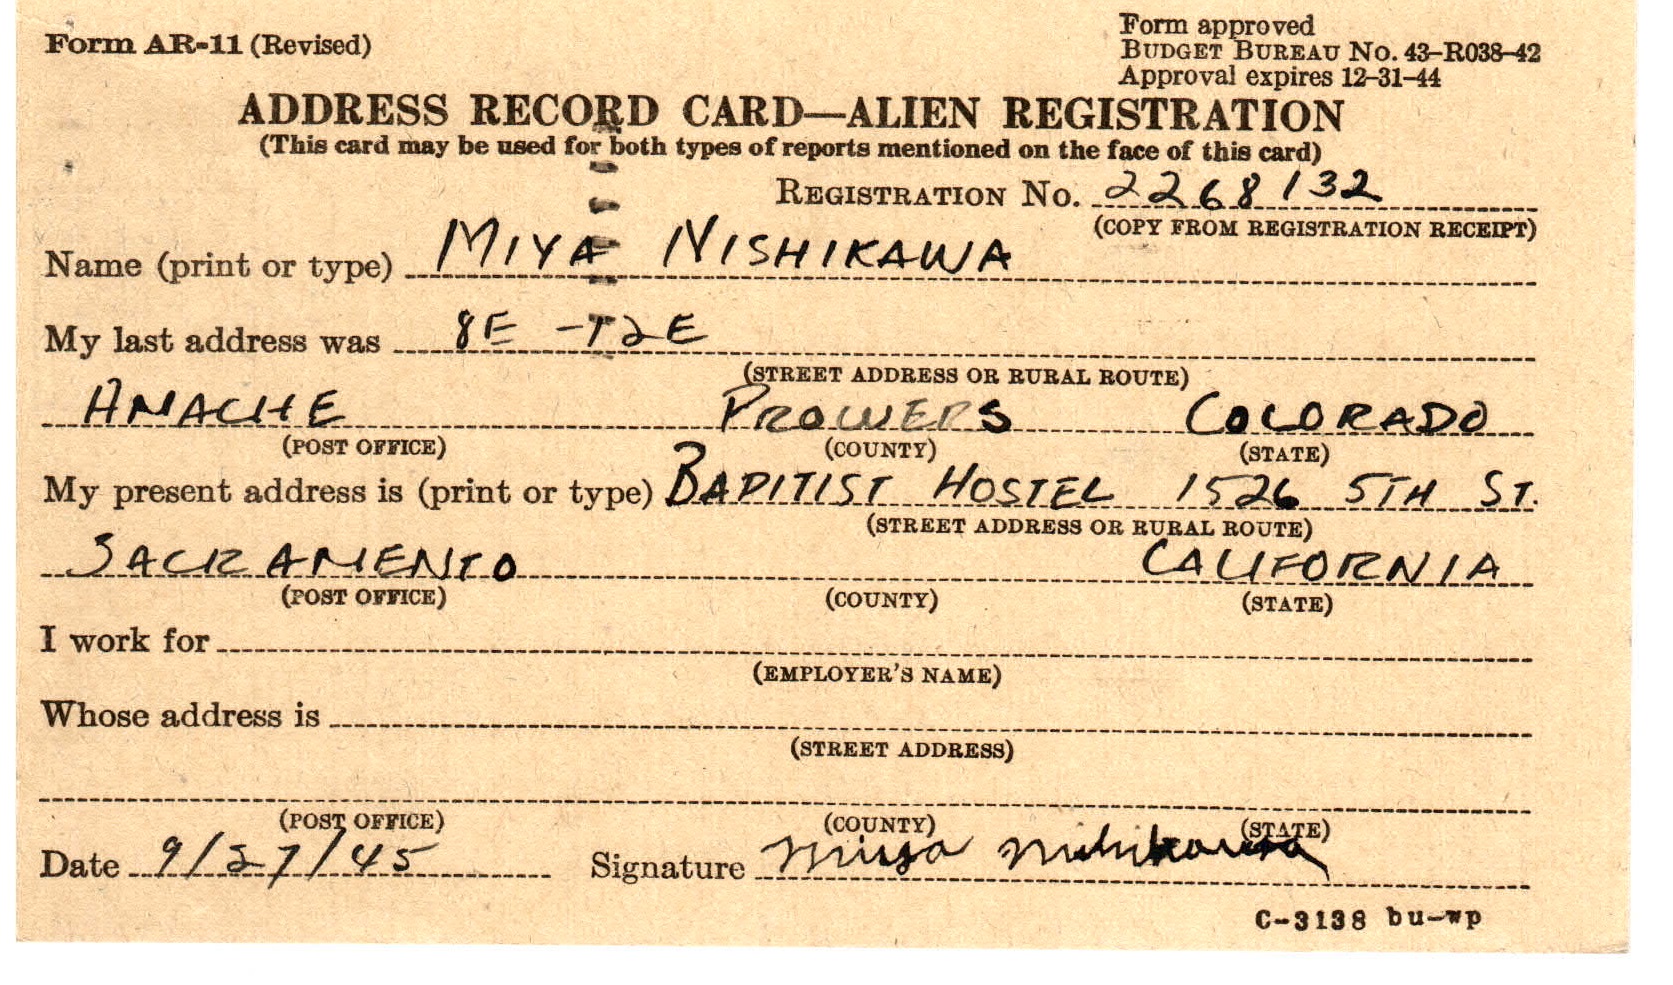 Form AR-11 (Revised)
Form approved
BUDGET BUREAU No. 43-R038-42
Approval expires 12-31-44
ADDRESS RECORD CARD—ALIEN REGISTRATION
(This card may be used for both types of reports mentioned on the face of this card)
REGISTRATION No. 2268132
(COPY FROM REGISTRATION RECEIPT)
Name (print or type) MIYA NISHIKAWA
My last address was 8E -T2E
(STREET ADDRESS OR RURAL ROUTE)
AMACHE PROWERS COLORADO
(POST OFFICE) (COUNTY) (STATE)
My present address is (print or type) BAPITIST HOSTEL 1526 5TH ST.
(STREET ADDRESS OR RURAL ROUTE)
SACRAMENTO CALIFORNIA
(POST OFFICE) (COUNTY) (STATE)
I work for
(EMPLOYER'S NAME)
Whose address is
(STREET ADDRESS)
(POST OFFICE) (COUNTY) (STATE)
Date 9/27/45 Signature Miya Nishikawa
C-3138 bu-wp